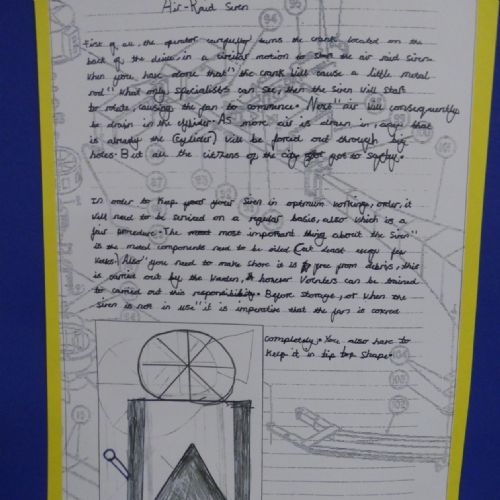 Air-Raid Siren
First of all, the operator carefully turns the crank located on the
back of the device, in a circular motion to start the air raid siren.
When you have done that" the crank will cause a little metal
rod" what only specialists can see, then the siren will start
to rotate, causing the fan to commence. Next" air will consequently
to drain in the cylider. As more air is drawn in, any that
is already the (cylider) will be forced out through big
holes. But all the citizens of the city got to safety.
In order to keep your siren in optimum workings, order, it
will need to be serviced on a regular basis, also which is a
fair procedure. The most important thing about the siren"
is the metal components need to be oiled (at least every few
weeks). Also" you need to make shore it is free from debris, this
is carried out by the Warden, however Volenters can be trained
to carried out this responsibility. Before storage, or when the
siren is not in use" it is imperative that the fan is covered
completely. You also have to
keep it in tip top shape.
94
95
93
87
104
103
102